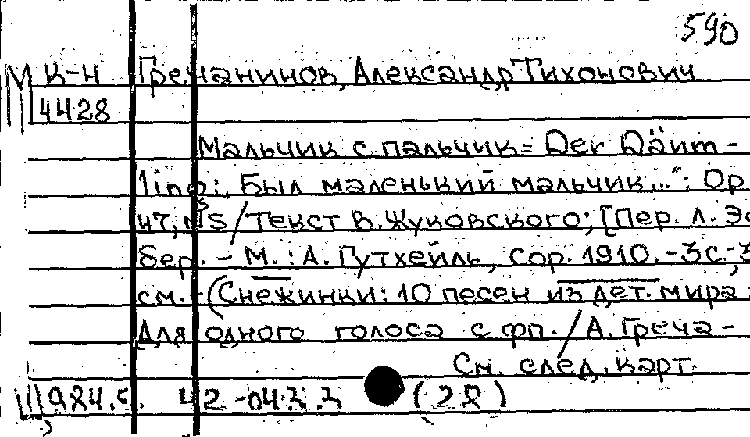 590
М к-н Гречанинов, Александр Тихонович
4428
Мальчик с пальчик = Der Däum-
ling: „Был маленький мальчик...": Op
47, № 5 / Текст В. Жуковского; [Пер. Л. Эс
бер. - М.: А. Гутхейль, cop. 1910. - 3 с.; 3
см. - (Снежинки: 10 песен из дет. мира :
Для одного голоса с фп. / А. Греча-
См. след. карт.
(28)